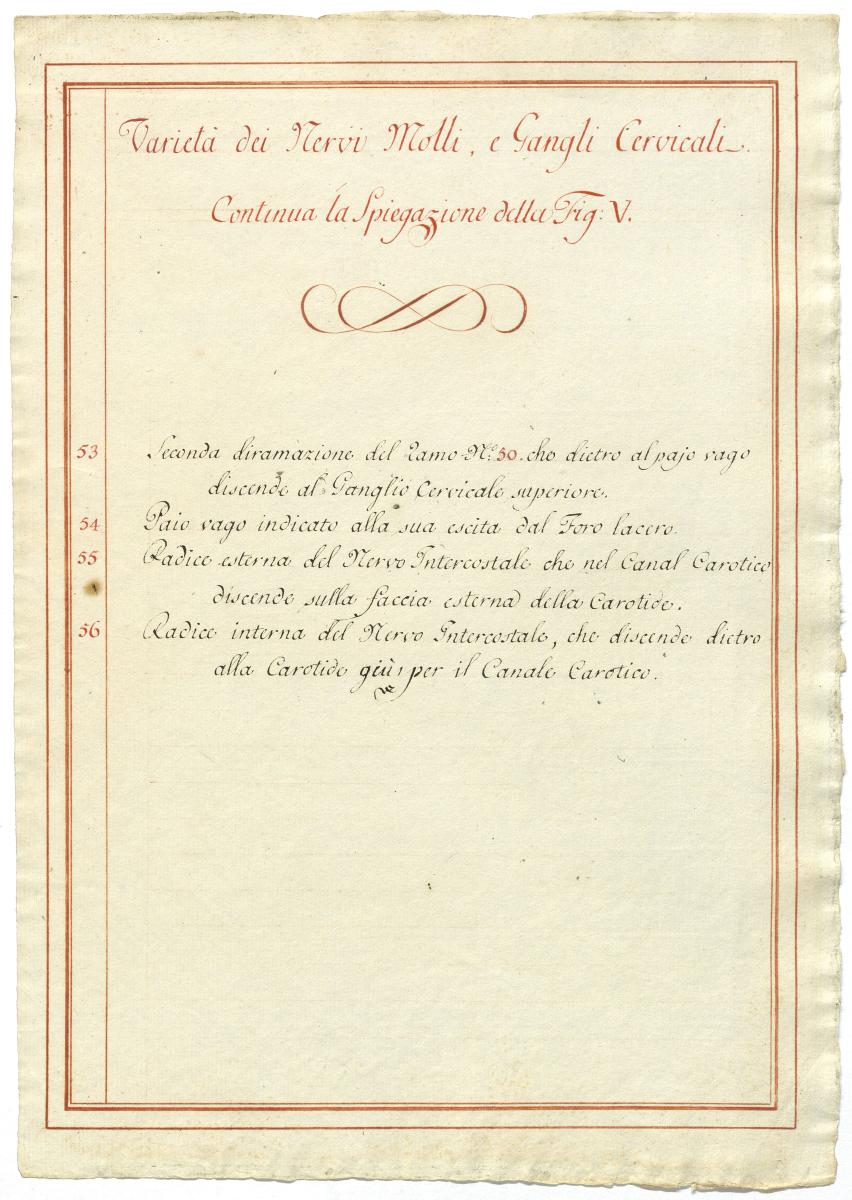 Varietà dei Nervi Molli, e Gangli Cervicali.
Continua la Spiegazione della Fig: V.
53 Seconda diramazione del Ramo N.º 50. che dietro al pajo vago
discende al Ganglio Cervicale superiore.
54 Paio vago indicato alla sua escita dal Foro lacero.
55 Radice esterna del Nervo Intercostale che nel Canal Carotico
discende sulla faccia esterna della Carotide.
56 Radice interna del Nervo Intercostale, che discende dietro
alla Carotide giù per il Canale Carotico.